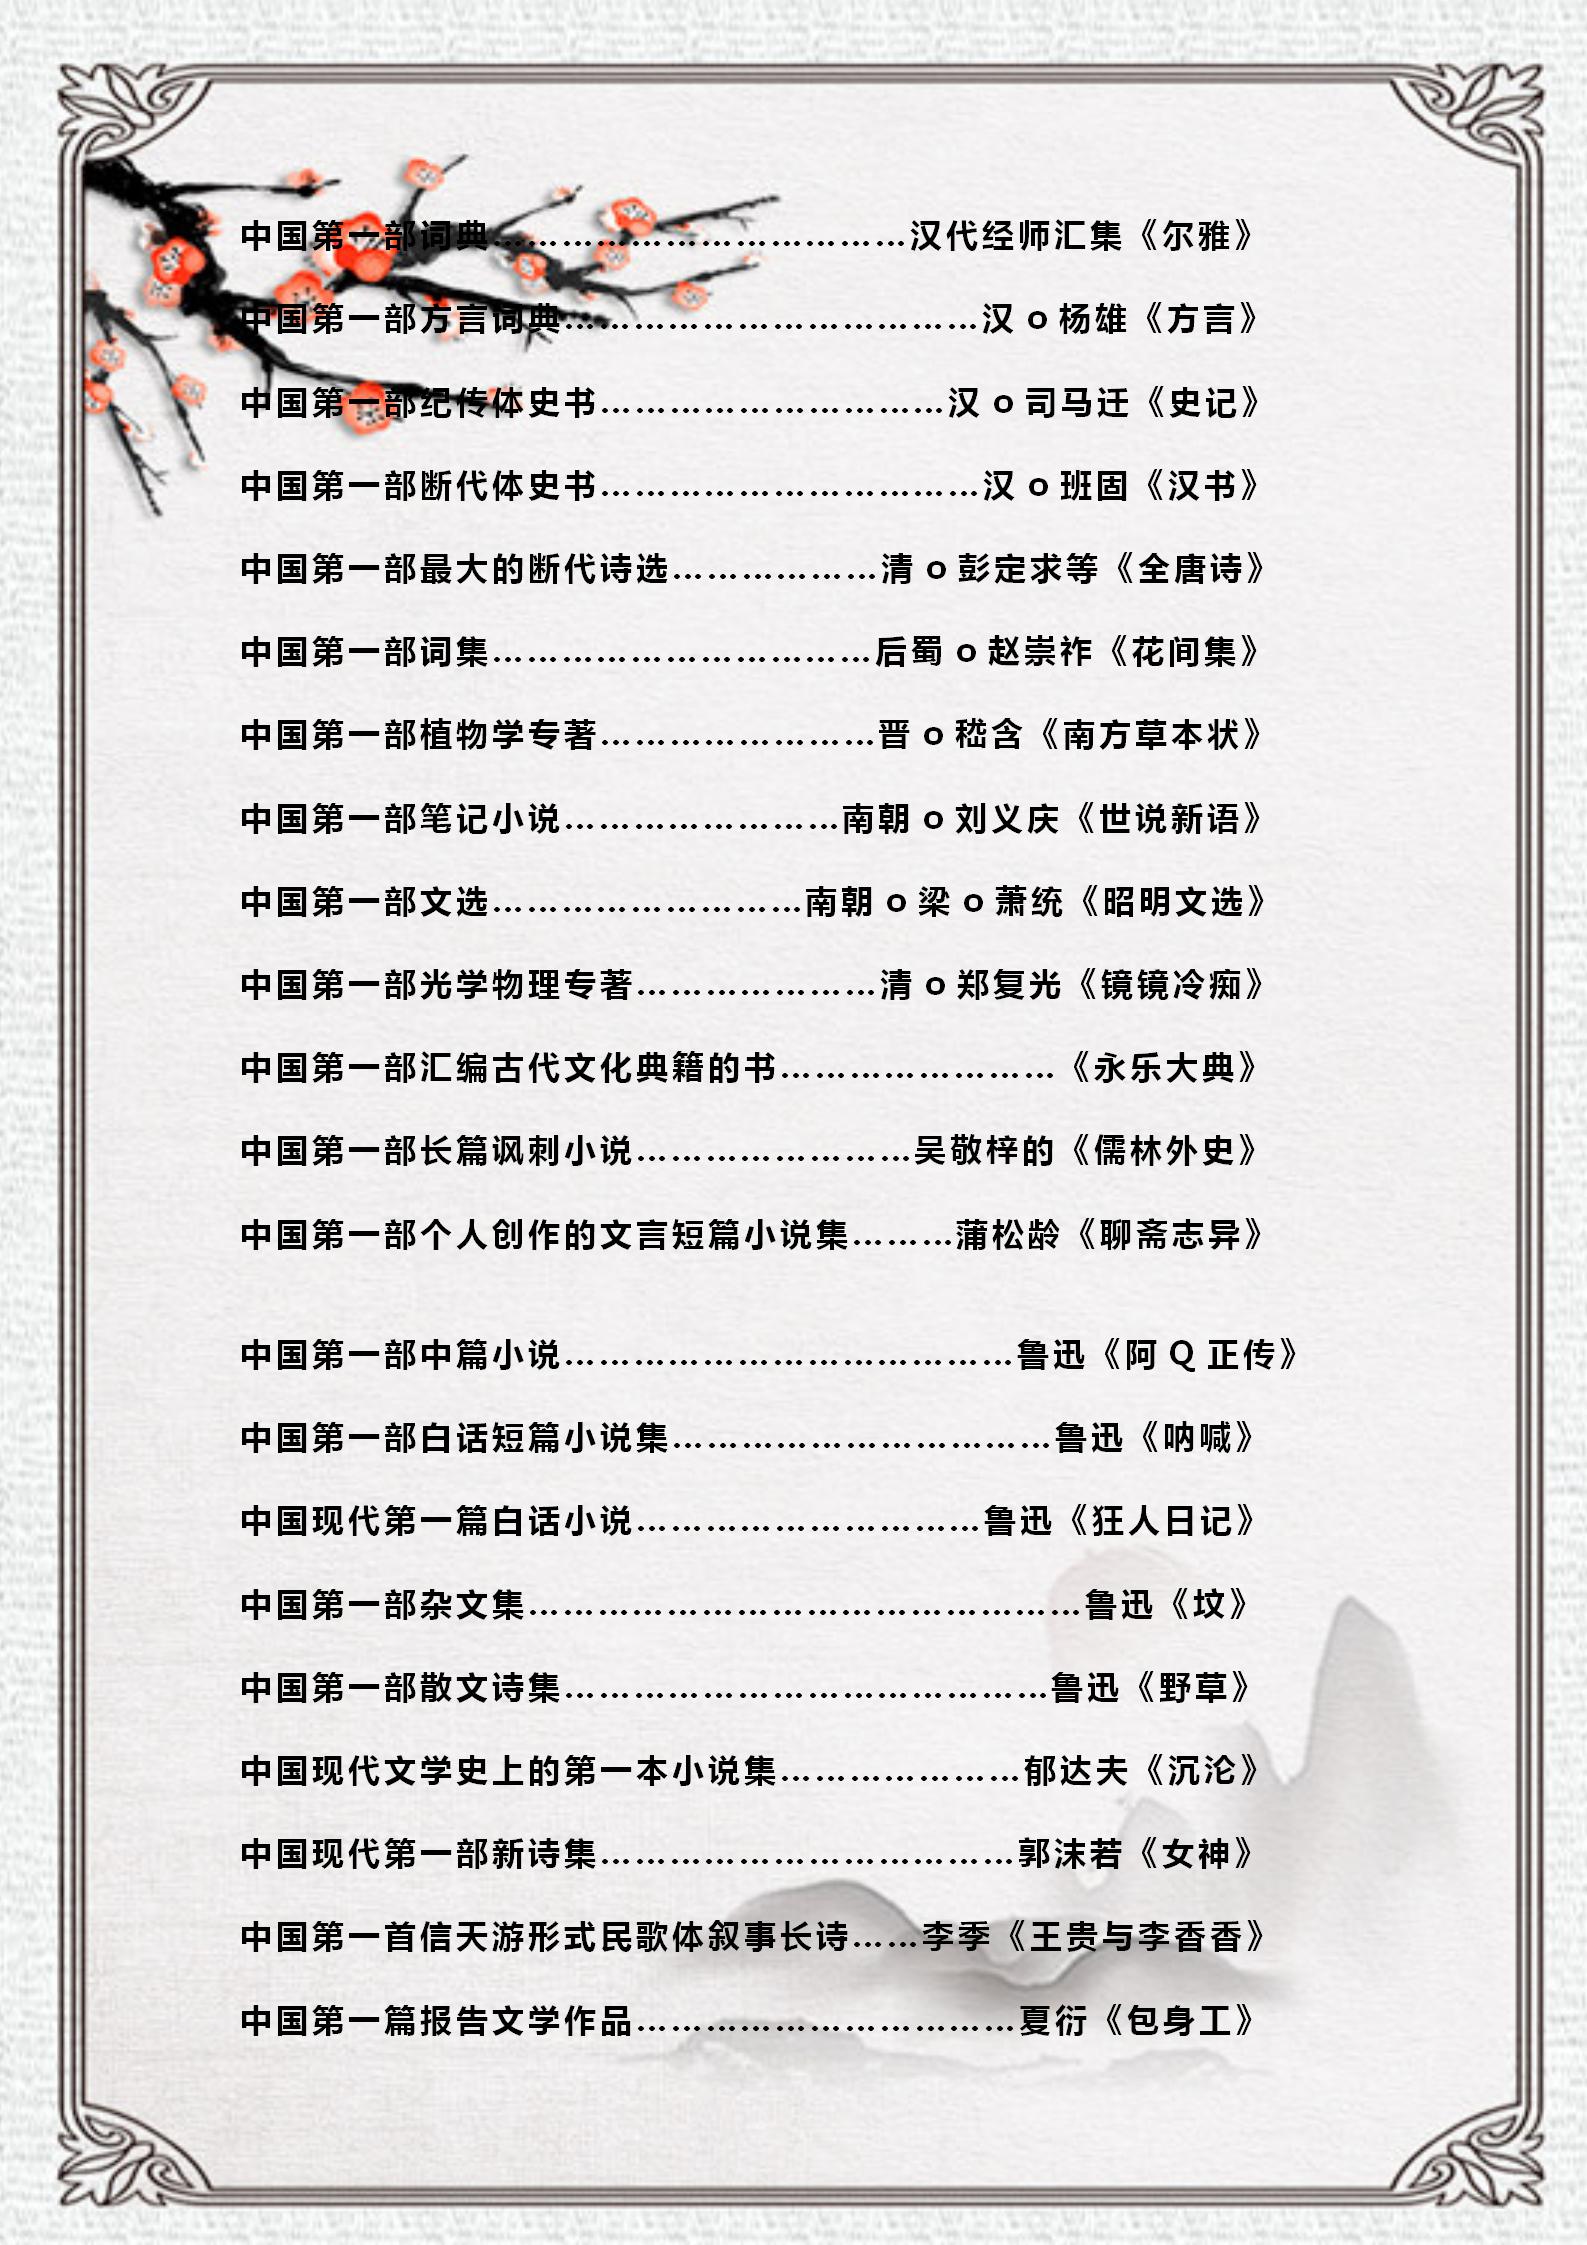 中国第一部词典………………………………汉代经师汇集《尔雅》
中国第一部方言词典………………………………汉 o 杨雄《方言》
中国第一部纪传体史书…………………………汉 o 司马迁《史记》
中国第一部断代体史书……………………………汉 o 班固《汉书》
中国第一部最大的断代诗选………………清 o 彭定求等《全唐诗》
中国第一部词集……………………………后蜀 o 赵崇祚《花间集》
中国第一部植物学专著……………………晋 o 嵇含《南方草本状》
中国第一部笔记小说……………………南朝 o 刘义庆《世说新语》
中国第一部文选………………………南朝 o 梁 o 萧统《昭明文选》
中国第一部光学物理专著…………………清 o 郑复光《镜镜冷痴》
中国第一部汇编古代文化典籍的书……………………《永乐大典》
中国第一部长篇讽刺小说……………………吴敬梓的《儒林外史》
中国第一部个人创作的文言短篇小说集………蒲松龄《聊斋志异》
中国第一部中篇小说…………………………………鲁迅《阿 Q 正传》
中国第一部白话短篇小说集……………………………鲁迅《呐喊》
中国现代第一篇白话小说…………………………鲁迅《狂人日记》
中国第一部杂文集…………………………………………鲁迅《坟》
中国第一部散文诗集……………………………………鲁迅《野草》
中国现代文学史上的第一本小说集…………………郁达夫《沉沦》
中国现代第一部新诗集………………………………郭沫若《女神》
中国第一首信天游形式民歌体叙事长诗……李季《王贵与李香香》
中国第一篇报告文学作品……………………………夏衍《包身工》